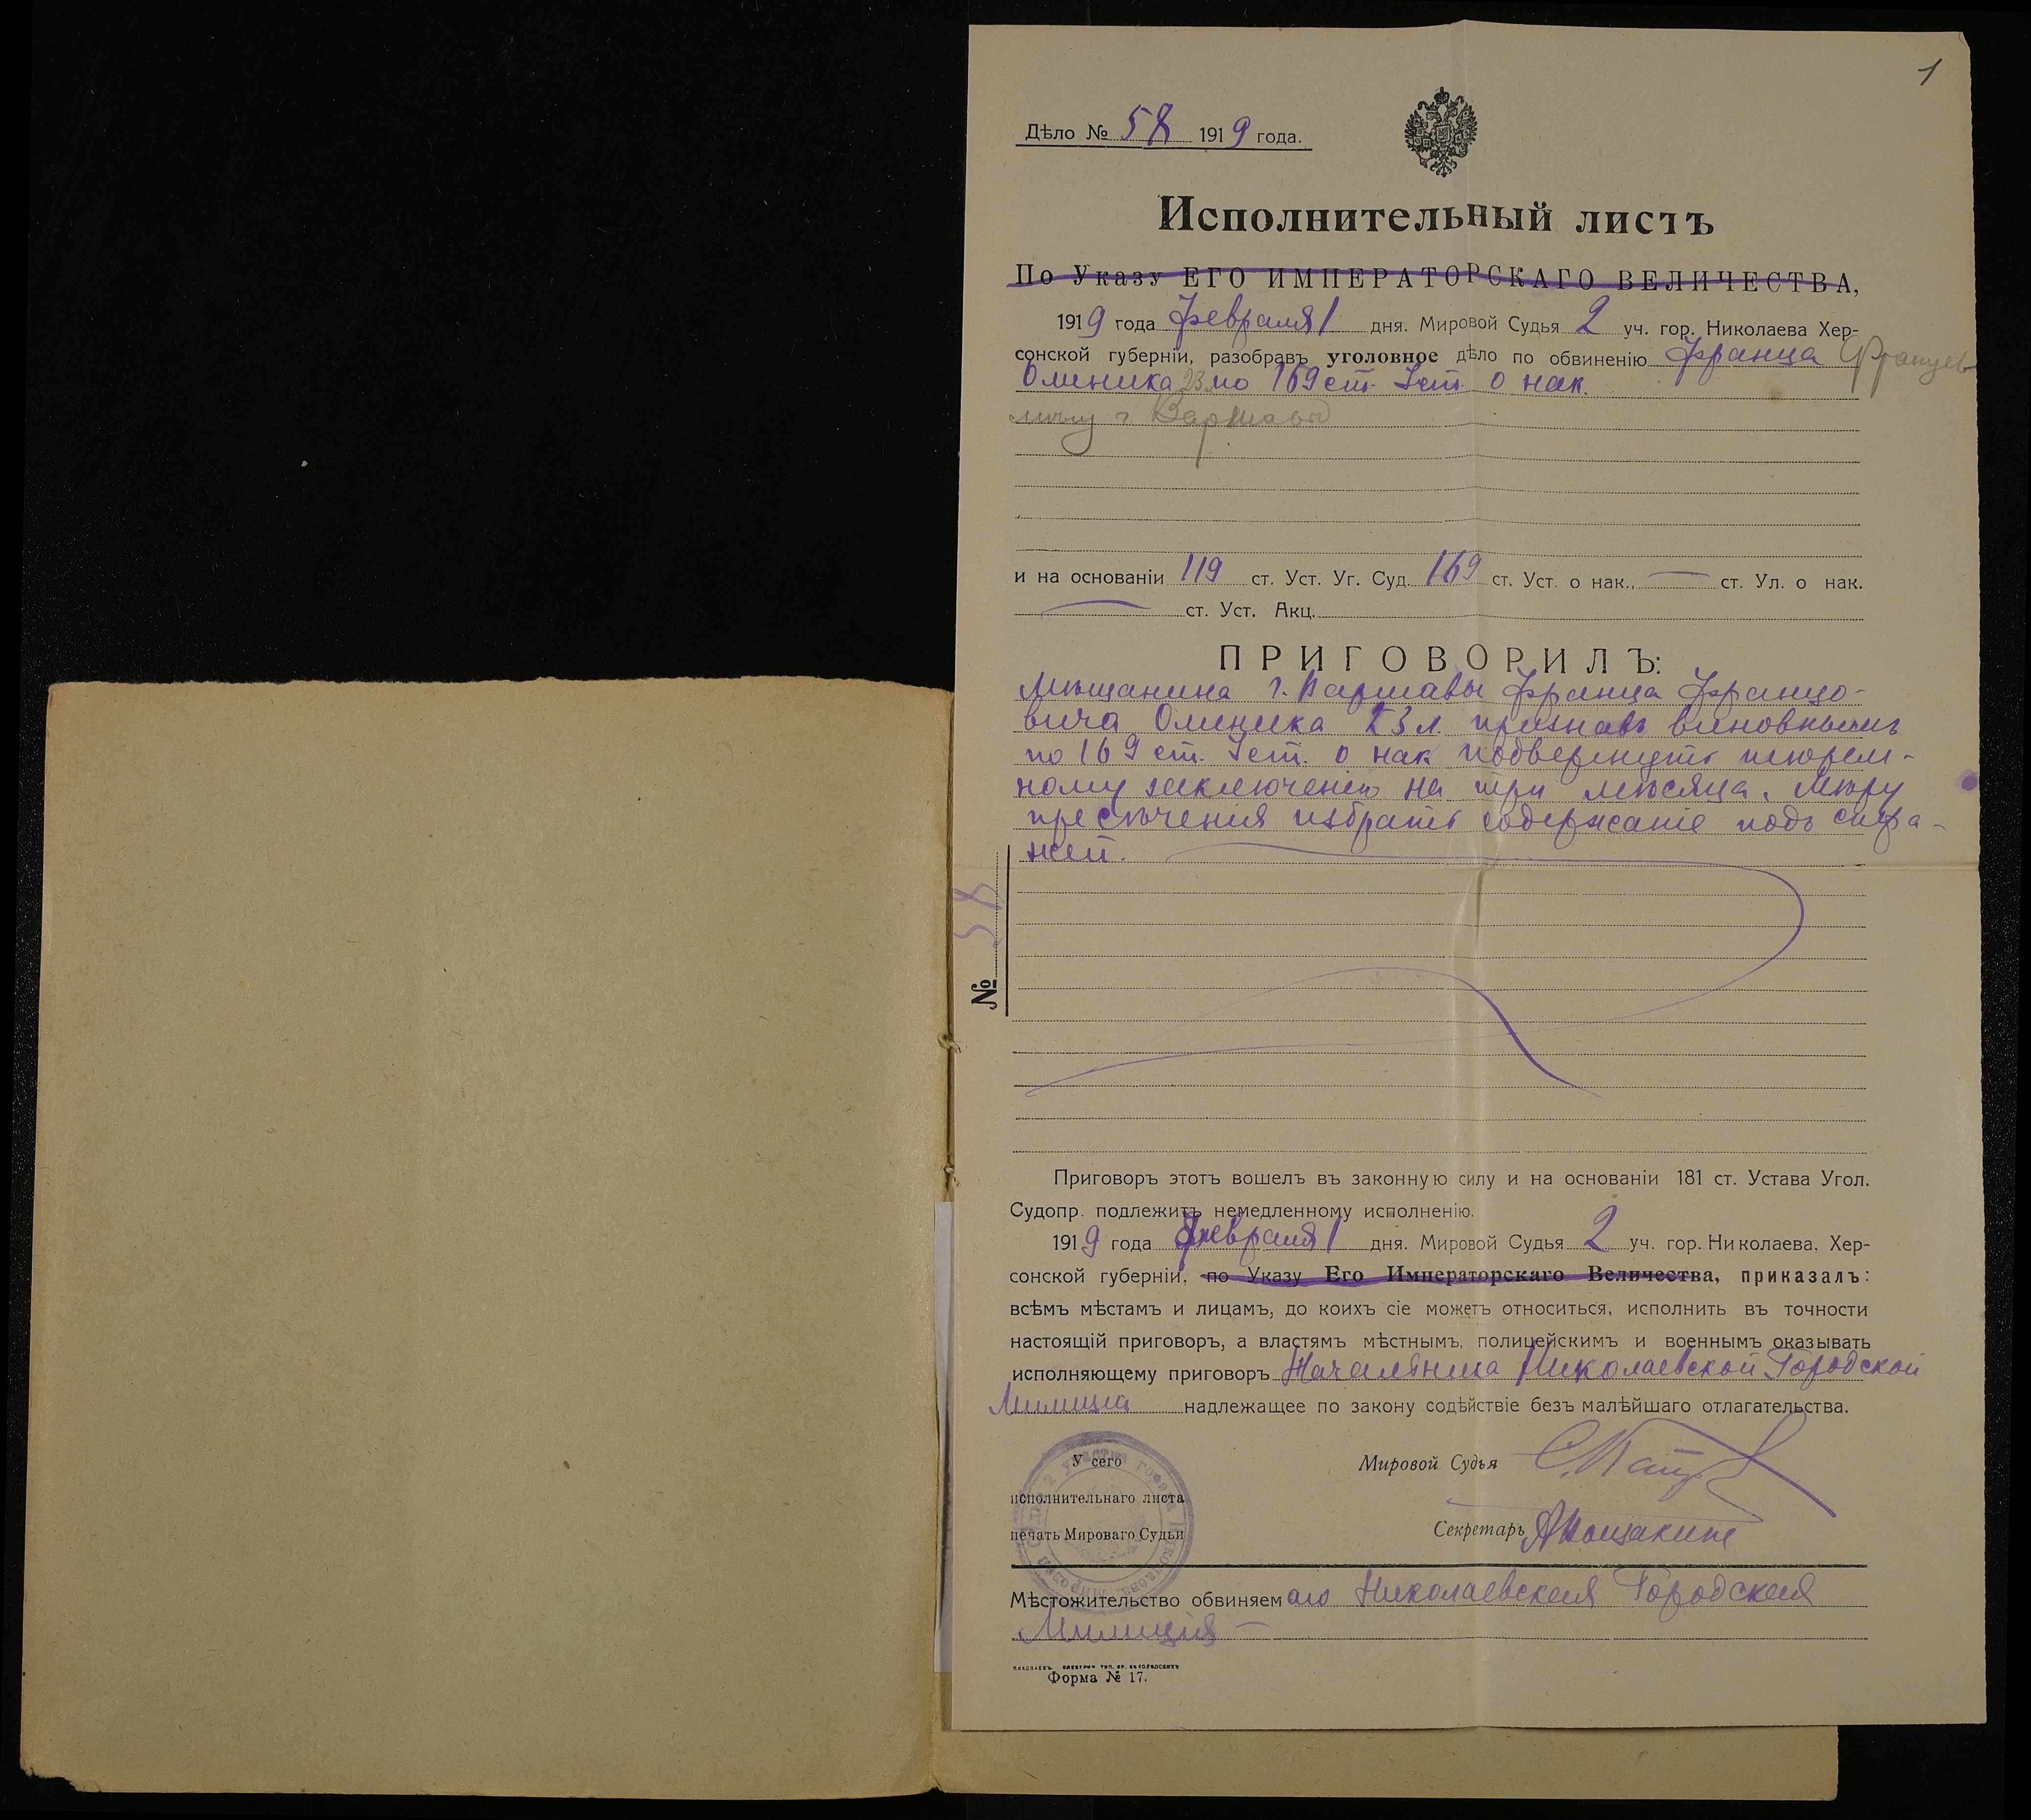 1
Дѣло № 58 1919 года.
Исполнительный листъ
По Указу ЕГО ИМПЕРАТОРСКАГО ВЕЛИЧЕСТВА,
1919 года февраля 1 дня. Мировой Судья 2 уч. гор. Николаева Хер-
сонской губерніи, разобравъ уголовное дѣло по обвиненію Франца Францев
Олиника 23 по 169 ст. Уст. о нак.
мѣщ г. Варшавы
и на основаніи 119 ст. Уст. Уг. Суд. 169 ст. Уст. о нак., — ст. Ул. о нак.
— ст. Уст. Акц.
ПРИГОВОРИЛЪ:
Мѣщанина г. Варшавы Франца Францо-
вича Олиника 23 л. признавъ виновнымъ
по 169 ст. Уст. о нак подвергнуть тюрем-
ному заключенію на три мѣсяца. Мѣру
пресѣченія избрать содержаніе подъ стра-
жей.
№ 58
Приговоръ этотъ вошелъ въ законную силу и на основаніи 181 ст. Устава Угол.
Судопр. подлежитъ немедленному исполненію.
1919 года февраля 1 дня. Мировой Судья 2 уч. гор. Николаева, Хер-
сонской губерніи, по Указу Его Императорскаго Величества, приказалъ:
всѣмъ мѣстамъ и лицамъ, до коихъ сіе можетъ относиться, исполнить въ точности
настоящій приговоръ, а властямъ мѣстнымъ, полицейскимъ и военнымъ оказывать
исполняющему приговоръ Начальника Николаевской Городской
Милиціи надлежащее по закону содѣйствіе безъ малѣйшаго отлагательства.
У сего
Мировой Судья
исполнительнаго листа
печать Мироваго Судьи
Секретарь
Мѣстожительство обвиняемаго Николаевская Городская
Милиція —
Форма № 17.